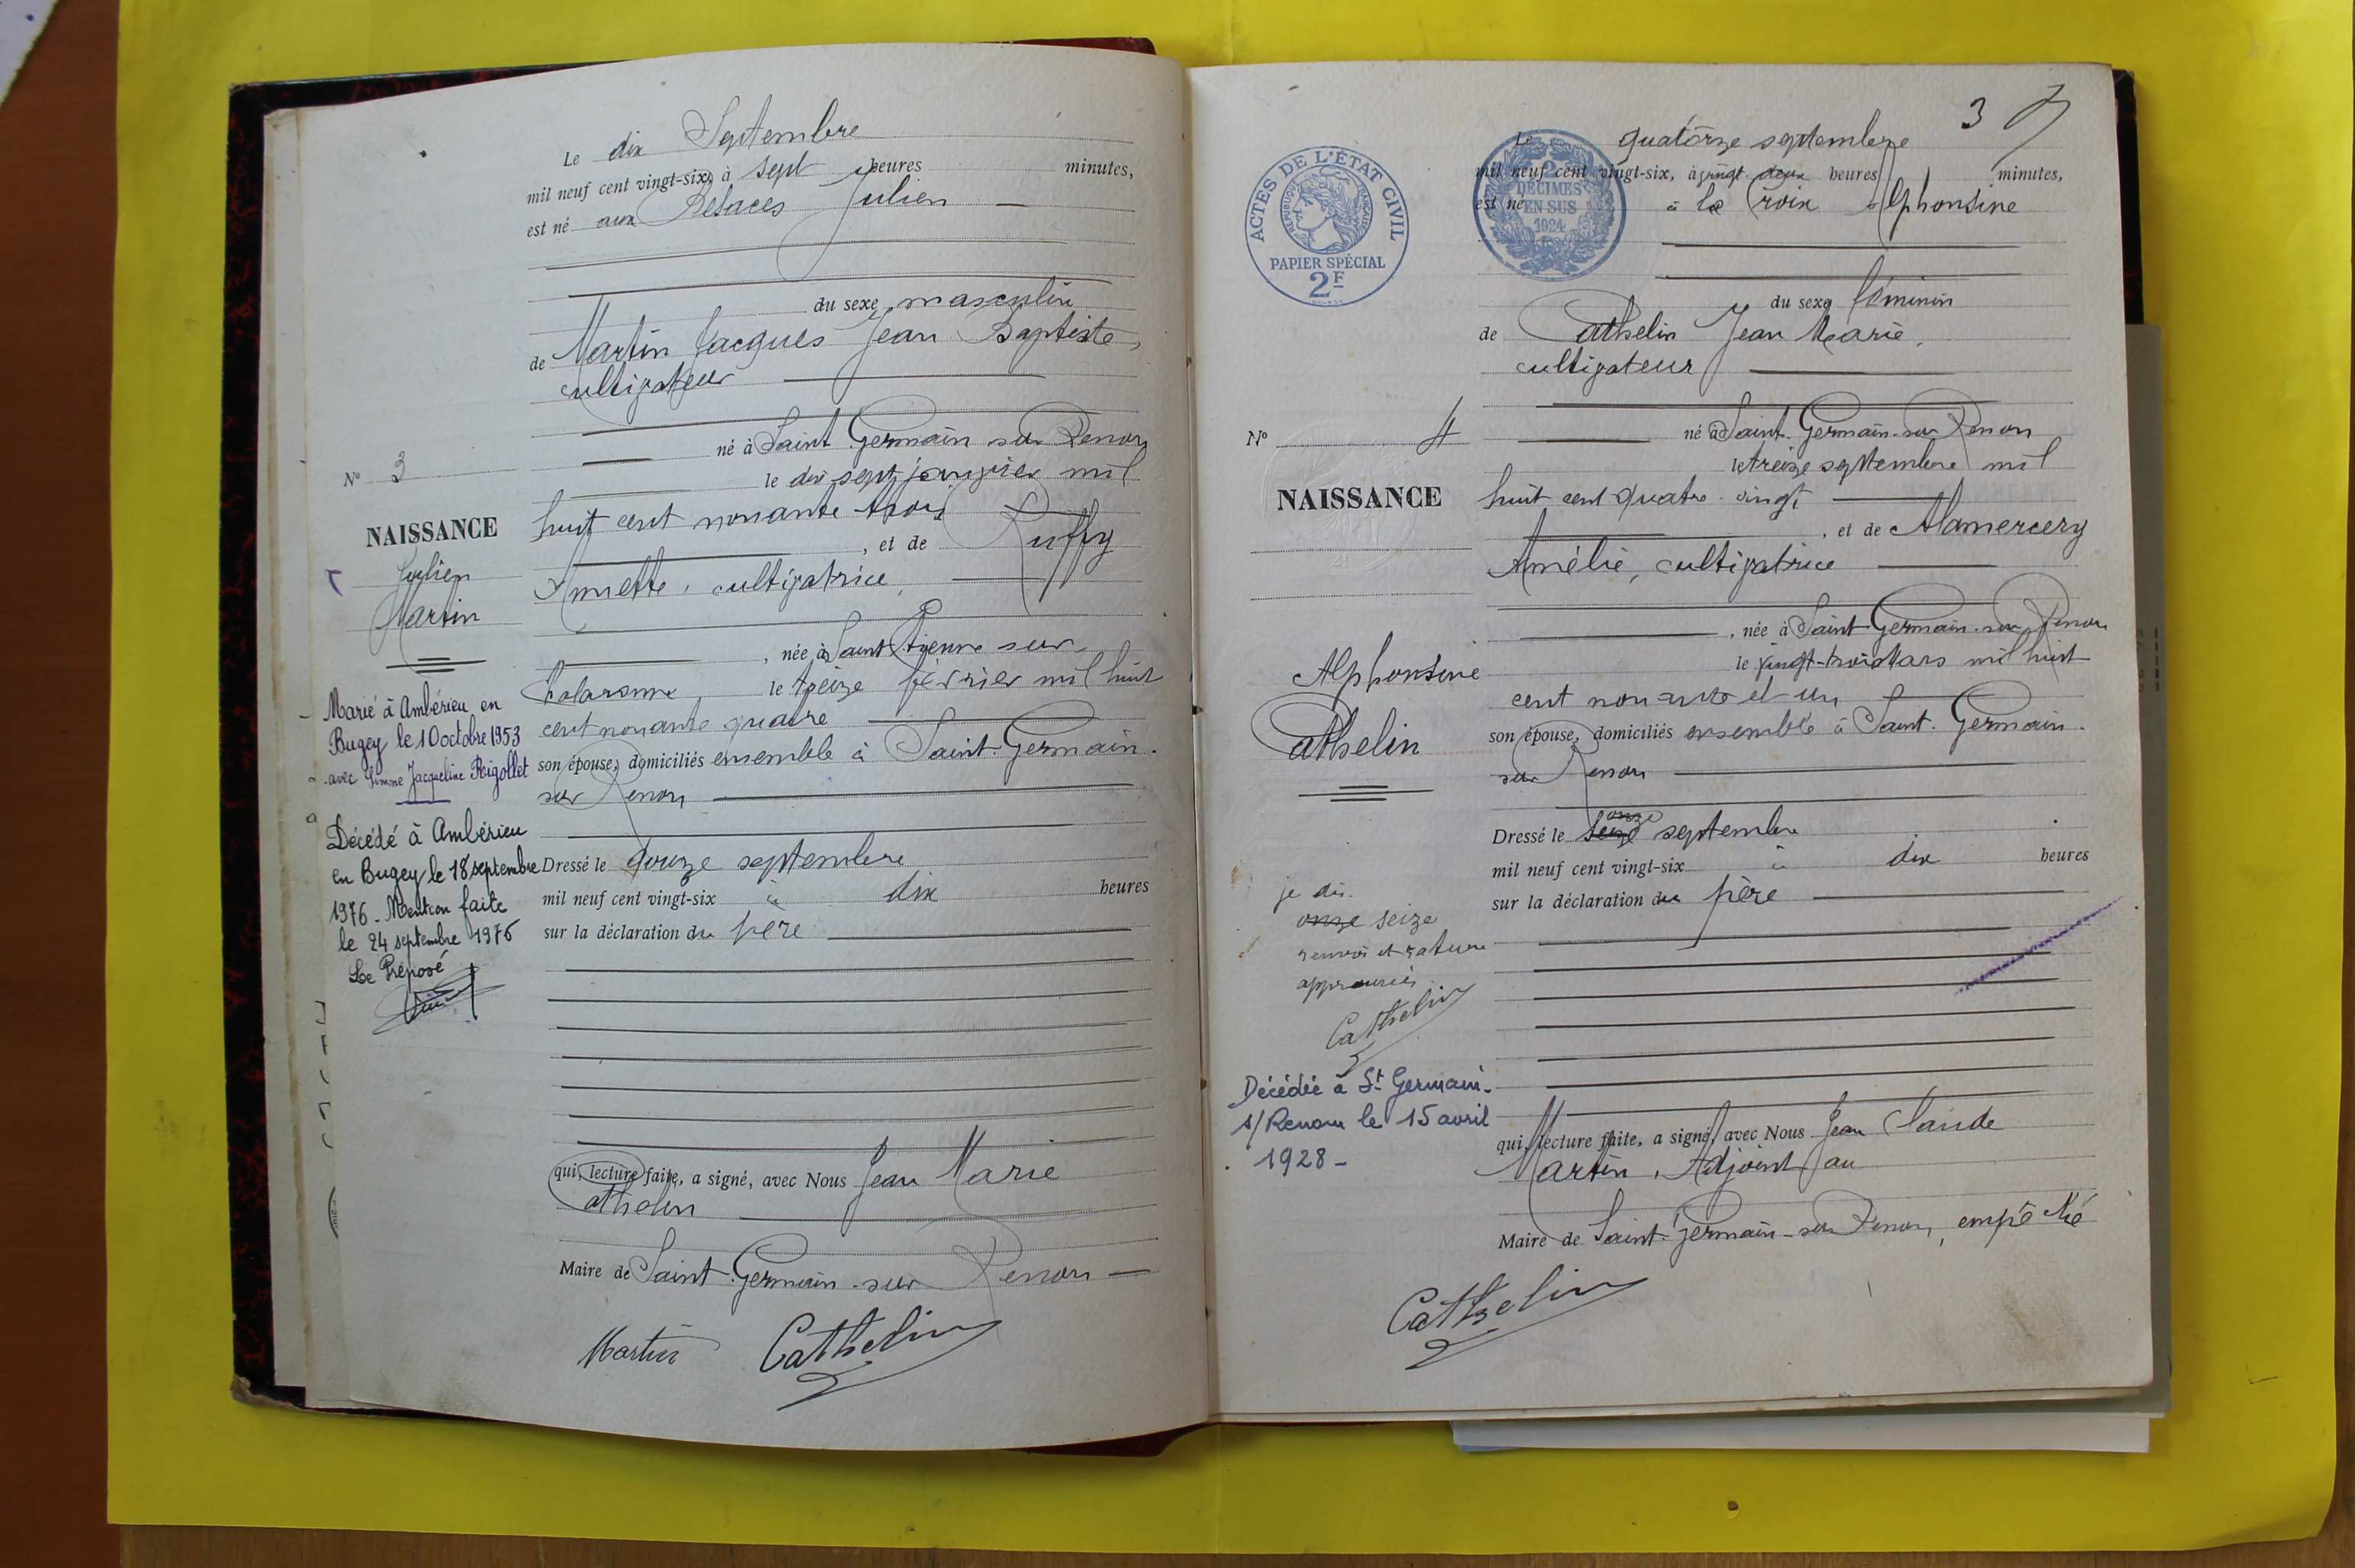 Le dix Septembre
mil neuf cent vingt-six, à sept heures minutes,
est né aux Julien
du sexe masculin
de Martin Jacques Jean Baptiste,
cultivateur
né à Saint Germain sur Renon
le dix sept janvier mil
huit cent nonante trois
, et de Ruffy
Annette, cultivatrice,
, née à Saint Etienne sur
Chalaronne, le treize février mil huit
cent nonante quatre
son épouse, domiciliés ensemble à Saint-Germain-
sur Renon
Dressé le douze septembre
mil neuf cent vingt-six à dix heures
sur la déclaration du père
qui, lecture faite, a signé, avec Nous Jean Marie
Cathelin
Maire de Saint-Germain-sur Renon
Martin Cathelin
N° 3
NAISSANCE
Julien
Martin
Marié à Ambérieu en
Bugey le 10 octobre 1953
avec Simone Jacqueline Rigollet
Décédé à Ambérieu
en Bugey le 18 septembre
1976 - Mention faite
le 24 septembre 1976
Le Préposé
3
Le quatorze septembre
mil neuf cent vingt-six, à vingt deux heures minutes,
est né à la Croix Alphonsine
du sexe féminin
de Cathelin Jean Marie,
cultivateur
né à Saint-Germain-sur Renon
le treize septembre mil
huit cent quatre-vingt
, et de Alamercery
Amélie, cultivatrice
, née à Saint-Germain-sur Renon
le vingt-trois Mars mil huit
cent nonante et un
son épouse, domiciliés ensemble à Saint-Germain-
sur Renon
onze
Dressé le seize septembre
mil neuf cent vingt-six à dix heures
sur la déclaration du père
qui, lecture faite, a signé, avec Nous Jean Claude
Martin, Adjoint au
Maire de Saint-Germain-sur Renon, empêché
Cathelin
ACTES DE L'ÉTAT CIVIL
RÉPUBLIQUE FRANÇAISE
PAPIER SPÉCIAL
2F
2
DÉCIMES
EN SUS
1924
N° 4
NAISSANCE
Alphonsine
Cathelin
je dis
onze seize
renvoi et rature
approuvés
Cathelin
Décédée à St Germain-
s/ Renom le 15 avril
1928-